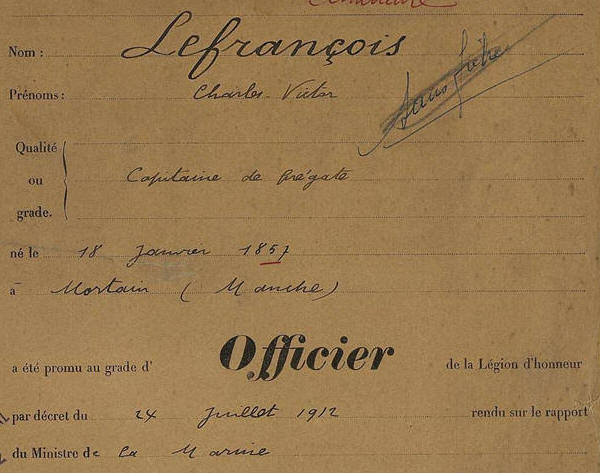 Nom : Lefrançois
Prénoms : Charles Victor
Qualité
ou
grade.
Capitaine de frégate
né le 18 Janvier 1857
à Mortain (Manche)
a été promu au grade d' Officier de la Légion d'honneur
par décret du 24 Juillet 1912 rendu sur le rapport
du Ministre de la Marine